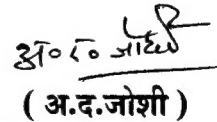 अ० द० जोशी
( अ.द.जोशी )